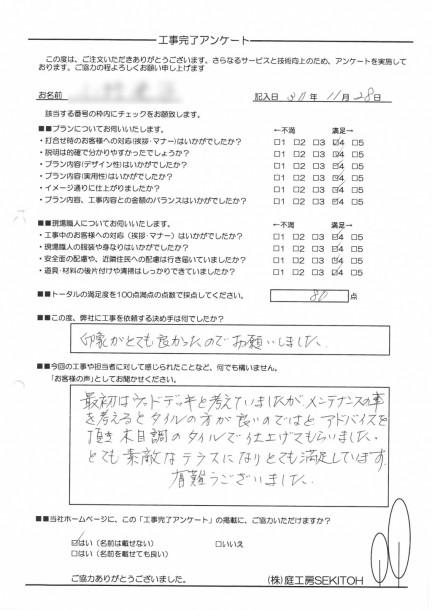 工事完了アンケート
この度は、ご注文いただきありがとうございます。さらなるサービスと技術向上のため、アンケートを実施して
おります。ご協力の程よろしくお願い申し上げます
お名前 記入日 30年 11月 28日
該当する番号の枠内にチェックをお願致します。
■■プランについてお伺いいたします。 ←不満 満足→
・打合せ時のお客様への対応(挨拶・マナー)はいかがでしたか? □1 □2 □3 ☑4 □5
・説明は的確で分かりやすかったでしょうか? □1 □2 □3 ☑4 □5
・プラン内容(デザイン性)はいかがでしたか? □1 □2 □3 ☑4 □5
・プラン内容(実用性)はいかがでしたか? □1 □2 □3 ☑4 □5
・イメージ通りに仕上がりましたか? □1 □2 □3 ☑4 □5
・プラン内容、工事内容との金額のバランスはいかがでしたか? □1 □2 □3 ☑4 □5
■■現場職人についてお伺いいたします。 ←不満 満足→
・工事中のお客様への対応(挨拶・マナー)はいかがでしたか? □1 □2 □3 ☑4 □5
・現場職人の服装や身なりはいかがでしたか? □1 □2 □3 ☑4 □5
・安全面の配慮や、近隣住民への配慮は行き届いていましたか? □1 □2 □3 ☑4 □5
・道具・材料の後片付けや清掃はしっかりできていましたか? □1 □2 □3 ☑4 □5
■■トータルの満足度を100点満点の点数で採点してください。 80 点
■■この度、弊社に工事を依頼する決め手は何でしたか?
印象がとても良かったのでお願いしました。
■■今回の工事や担当者に対して感じられたことなど、何でも構いません。
「お客様の声」としてお聞かせください。
最初はウッドデッキと考えていましたが、メンテナンスの事
を考えるとタイルの方が良いのではとアドバイスを
頂き木目調のタイルで仕上げてもらいました。
とても素敵なテラスになりとても満足しています。
有難うございました。
■■当社ホームページに、この「工事完了アンケート」の掲載に、ご協力いただけますか?
☑はい(名前は載せない) □いいえ
□はい(名前を載せても良い)
ご協力ありがとうございました。 (株)庭工房SEKITOH